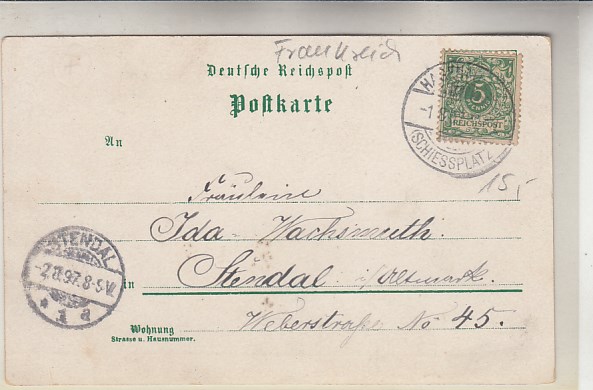 Frankreich
Deutsche Reichspost
Postkarte
5
REICHSPOST
(SCHIESSPLATZ)
15,-
An
Fräulein
Ida Wachsmuth.
STENDAL
8-9V.
* 1 a
in Stendal i/Altmark.
Wohnung
Strasse u. Hausnummer.
Weberstraße No 45.